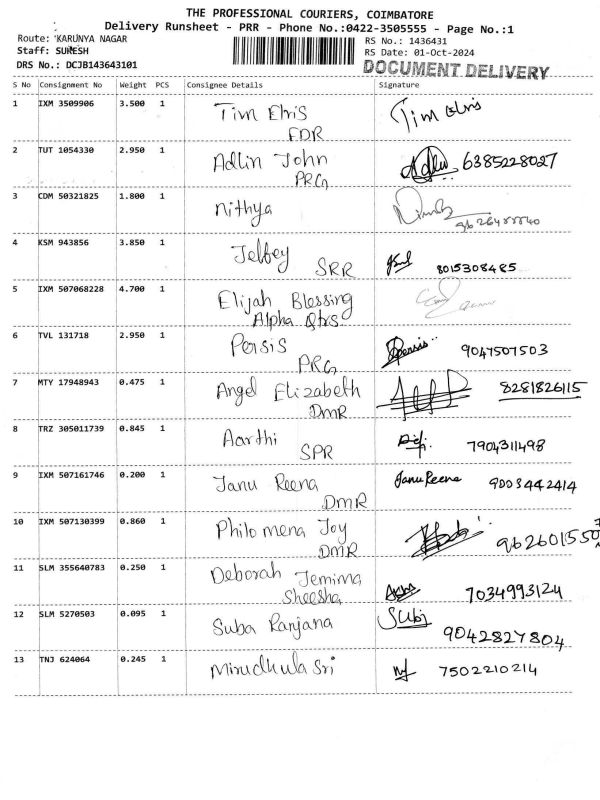 THE PROFESSIONAL COURIERS, COIMBATORE
Delivery Runsheet - PRR - Phone No.:0422-3505555 - Page No.:1
Route: KARUNYA NAGAR
RS No.: 1436431
Staff: SURESH
RS Date: 01-Oct-2024
DRS No.: DCJB143643101
DOCUMENT DELIVERY
S No Consignment No Weight PCS Consignee Details Signature
1 IXM 3509906 3.500 1 Tim Elvis Tim Elvis
FDR
2 TUT 1054330 2.950 1 Adlin John 6385228027
PRG
3 CDM 50321825 1.800 1 Nithya
4 KSM 943856 3.850 1 Jeffey
SRR 8015308485
5 IXM 507068228 4.700 1 Elijah Blessing
Alpha Qtrs
6 TVL 131718 2.950 1 Persis Persis 9047507503
PRG
7 MTY 17948943 0.475 1 Angel Elizabeth 8281826115
DMR
8 TRZ 305011739 0.845 1 Aarthi 7904311498
SPR
9 IXM 507161746 0.200 1 Janu Reena Janu Reena 9003442414
DMR
10 IXM 507130399 0.860 1 Philomena Joy
DMR
11 SLM 355640783 0.250 1 Deborah Jemima 7034993124
Sheesha
12 SLM 5270503 0.095 1 Suba Ranjana Subi
9042827804
13 TNJ 624064 0.245 1 Mirudhula Sri 7502210214